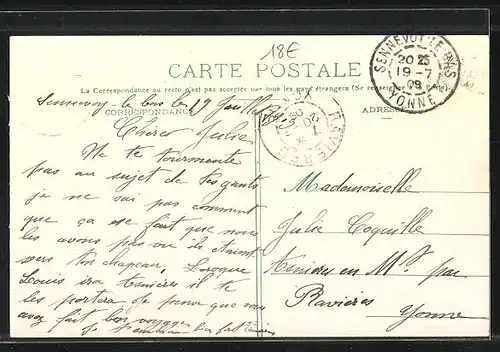 18€
CARTE POSTALE
La Correspondance au recto n'est pas acceptée par tous les pays étrangers (Se renseigner à la Poste)
CORRESPONDANCE
ADRESSE
SENNEVOY-LE-BAS
20 25
19 -7
09
YONNE
RAVIERES
20
7
09
Sennevoy-le bas le 19 Juillet 09
Chère Julia
Ne te tourmente
pas au sujet de tes gants
je ne sai pas comment
que ça ce fait que nous
les avons pas vu ils étaient
vers ton chapeau, Lorsque
Louis ira il te
les portera Je pense que vous
avez fait bon voyage
Je
Mademoiselle
Julia Coquille
en Mt. par
Ravières
Yonne